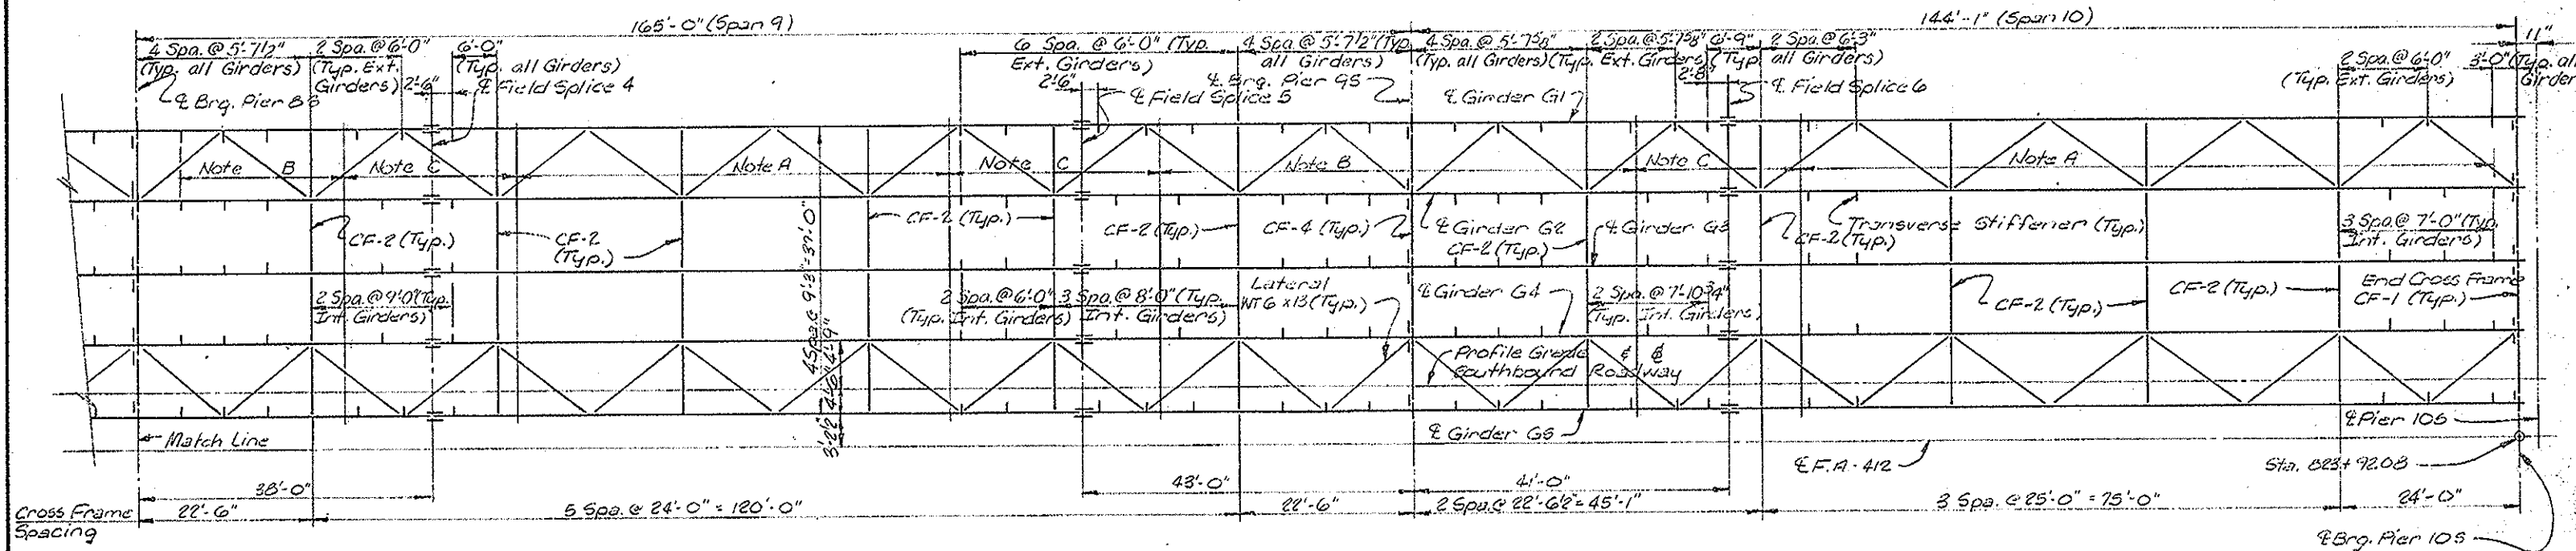 165'-0" (Span 9)
144'-1" (Span 10)
4 Spa. @ 5'-7 1/2"
(Typ. all Girders)
2 Spa. @ 6'-0"
(Typ. Ext.
Girders)
6'-0"
(Typ. all Girders)
2'-6"
℄ Brg. Pier 8S
℄ Field Splice 4
6 Spa. @ 6'-0" (Typ.
Ext. Girders)
2'-6"
4 Spa. @ 5'-7 1/2" (Typ.
all Girders)
℄ Brg. Pier 9S
℄ Field Splice 5
4 Spa. @ 5'-7 5/8"
(Typ. all Girders)
2 Spa. @ 5'-7 5/8"
(Typ. Ext. Girders)
6'-9"
(Typ.
2 Spa. @ 6'-3"
all Girders)
2'-8"
℄ Girder G1
℄ Field Splice 6
2 Spa. @ 6'-0"
(Typ. Ext. Girders)
11"
3'-0" (Typ. all
Girder
Note B
Note C
Note A
Note C
Note B
Note C
Note A
CF-2 (Typ.)
CF-2
(Typ.)
CF-2 (Typ.)
CF-2 (Typ.)
CF-4 (Typ.)
℄ Girder G2
CF-2 (Typ.)
℄ Girder G3
CF-2
(Typ.)
Transverse Stiffener (Typ.)
3 Spa. @ 7'-0" (Typ.
Int. Girders)
4 Spa. @ 9'-3" = 37'-0"
2 Spa. @ 9'-0" (Typ.
Int. Girders)
2 Spa. @ 6'-0"
(Typ. Int. Girders)
3 Spa. @ 8'-0" (Typ.
Int. Girders)
Lateral
WT 6 x 13 (Typ.)
℄ Girder G4
2 Spa. @ 7'-10 3/4"
(Typ. Int. Girders)
CF-2 (Typ.)
CF-2 (Typ.)
End Cross Frame
CF-1 (Typ.)
Profile Grade
Southbound Roadway
4'-9"
Match Line
℄ Girder G5
℄ F.A.-412
℄ Pier 10S
Sta. 823+92.08
38'-0"
43'-0"
41'-0"
Cross Frame
Spacing
22'-6"
5 Spa. @ 24'-0" = 120'-0"
22'-6"
2 Spa. @ 22'-6 1/2" = 45'-1"
3 Spa. @ 25'-0" = 75'-0"
24'-0"
℄ Brg. Pier 10S